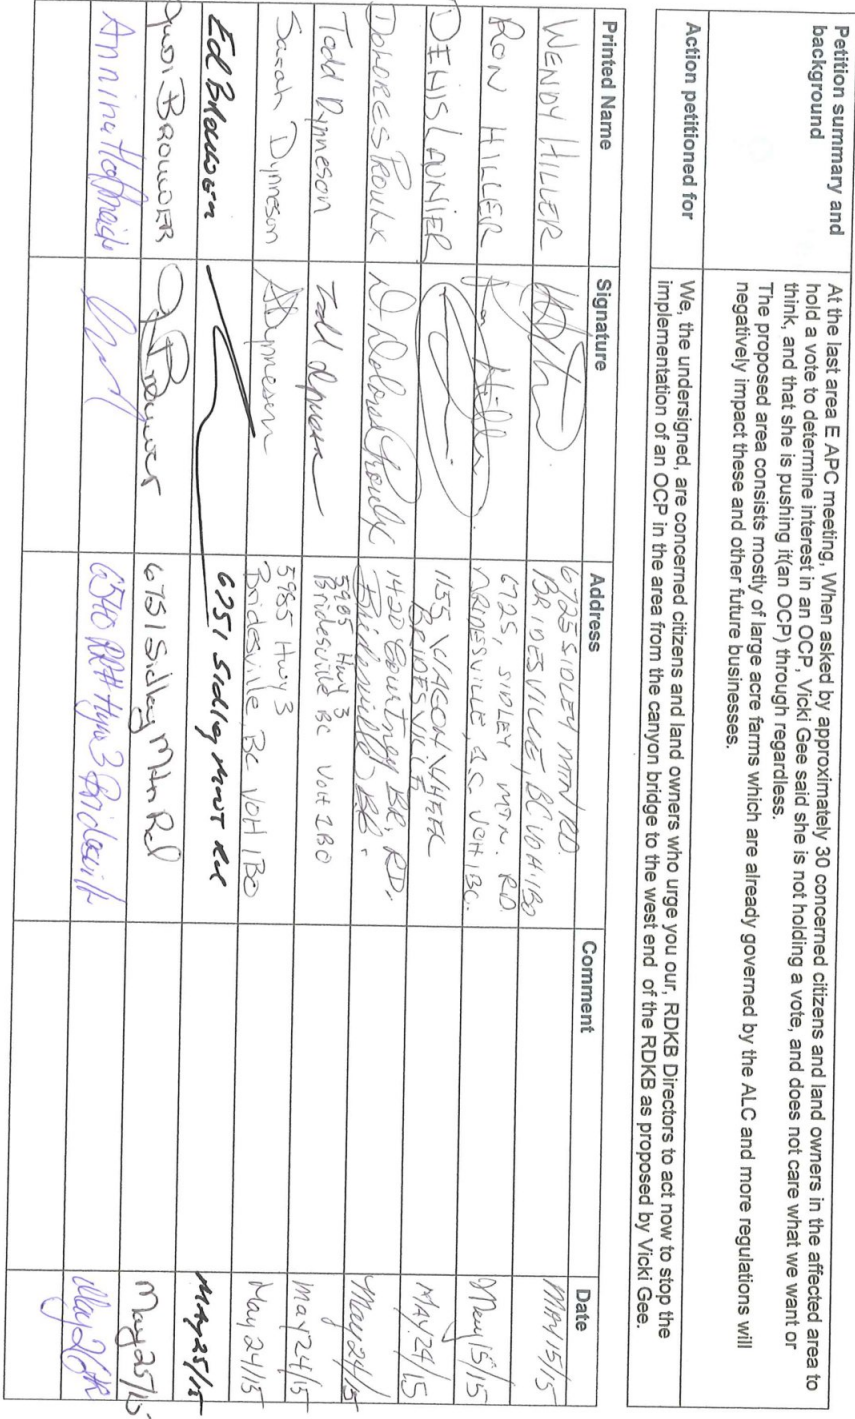 Petition summary and
background
At the last area E APC meeting, When asked by approximately 30 concerned citizens and land owners in the affected area to
hold a vote to determine interest in an OCP, Vicki Gee said she is not holding a vote, and does not care what we want or
think, and that she is pushing it(an OCP) through regardless.
The proposed area consists mostly of large acre farms which are already governed by the ALC and more regulations will
negatively impact these and other future businesses.
Action petitioned for
We, the undersigned, are concerned citizens and land owners who urge you our, RDKB Directors to act now to stop the
implementation of an OCP in the area from the canyon bridge to the west end of the RDKB as proposed by Vicki Gee.
Printed Name Signature Address Comment Date
WENDY HILLER 6725 SIDLEY MTN RD.
BRIDESVILLE, BC V0H 1B0 MAY 15/15
RON HILLER Ron Hiller 6725, SIDLEY MTN. RD.
BRIDESVILLE, B.C. V0H 1B0. May 15/15
DENIS LAUNIER 1155 WAGON WHEEL
BRIDESVILLE MAY 24/15
DOLORES PROULX D. Dolores Proulx 1420 Courtney BR. RD.
Bridesville BC. May 24/15
Todd Dynneson Todd 5985 Hwy 3
Bridesville BC V0H 1B0 may 24/15
Sarah Dynneson SDynneson 5985 Hwy 3
Bridesville, BC V0H 1B0 May 24/15
Ed Brouwer 6751 Sidley MNT Rd MAY 25/15
BROUWER Brouwer 6751 Sidley Mtn Rd May 25/15
Annina 6540 Hwy 3 Bridesville May 26